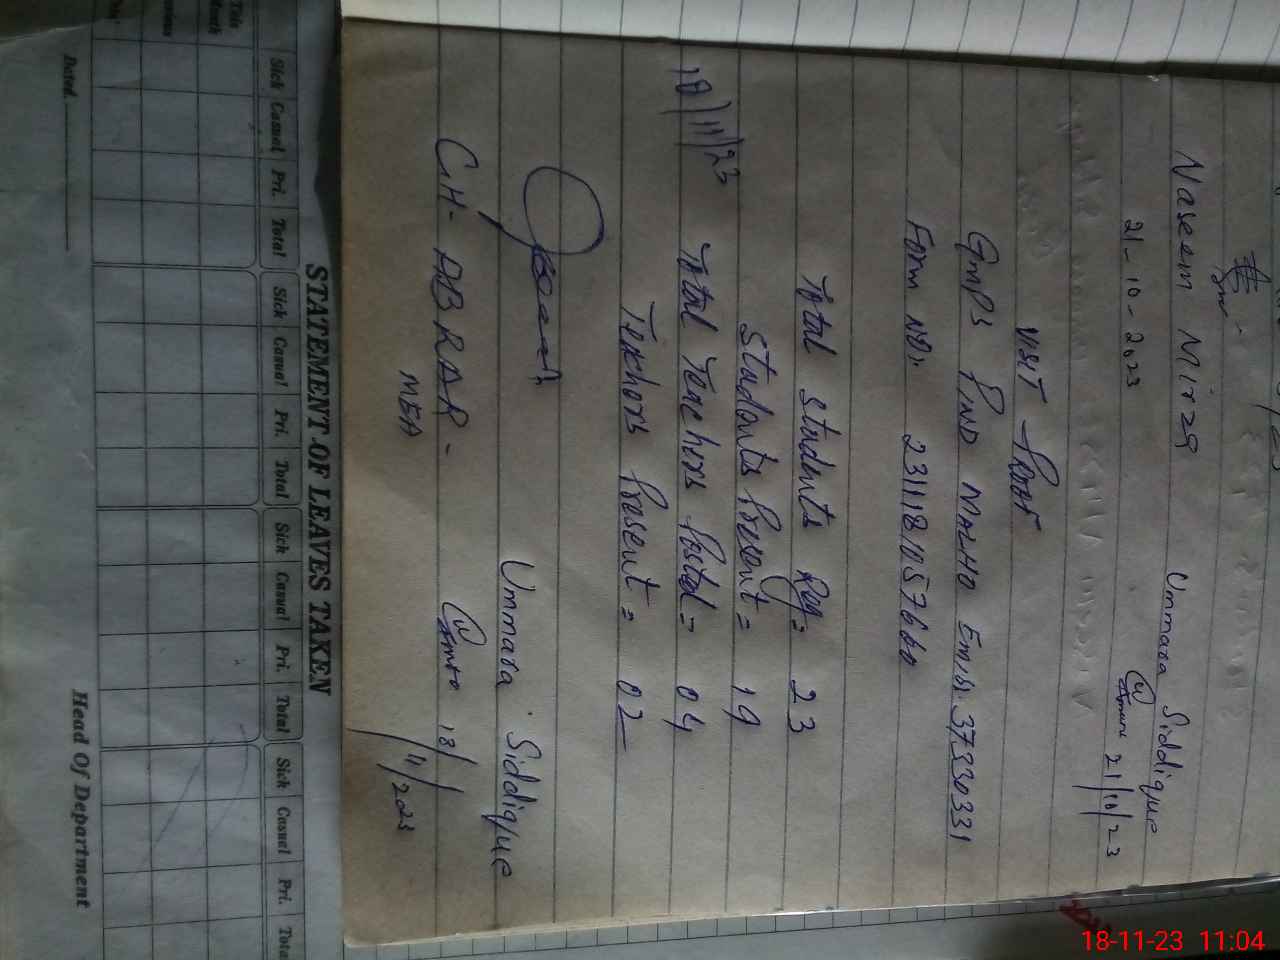 Naseem Mirza
21-10-2023
Ummara Siddique
21/10/23
VISIT PROOF
GMPS PIND MALHO Emis. 37330331
Form No:
Total Students Reg = 23
Students Present = 19
Total Teachers Posted = 04
Teachers Present = 02
18/11/23
Ummara Siddique
18/11/2023
CH- ABRAR-
MEA
STATEMENT OF LEAVES TAKEN
Sick Casual Pri. Total Sick Casual Pri. Total Sick Casual Pri. Total Sick Casual Pri. Total
This Month
Dated
Head Of Department
18-11-23 11:04